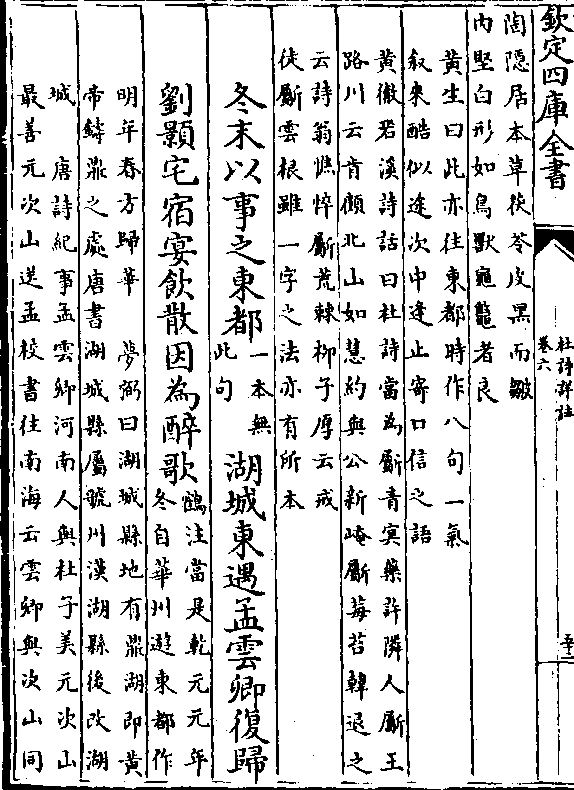 欽定四庫全書
杜詩詳註
卷六
陶隱居本草茯苓皮黑而皺
內堅白形如鳥獸龜鼈者良
黃生曰此亦往東都時作八句一氣
叙來酷似途次中逢止寄口信之語
黃徹䂬溪詩話曰杜詩當為斸青冥藥許隣人斸王
路川云肯顧北山如慧約與公新崦斸莓苔韓退之
云詩翁憔悴斸荒棘柳子厚云戒
徒斸雲根雖一字之法亦有所本
冬末以事之東都
一本無
此句
湖城東遇孟雲卿復歸
劉顥宅宿宴飲散因為醉歌
鶴注當是乾元元年
冬自華州遊東都作
明年春方歸華 夢弼曰湖城縣地有鼎湖即黃
帝鑄鼎之處唐書湖城縣屬虢州漢湖縣後改湖
城 唐詩紀事孟雲卿河南人與杜子美元次山
最善元次山送孟校書往南海云雲卿與次山同